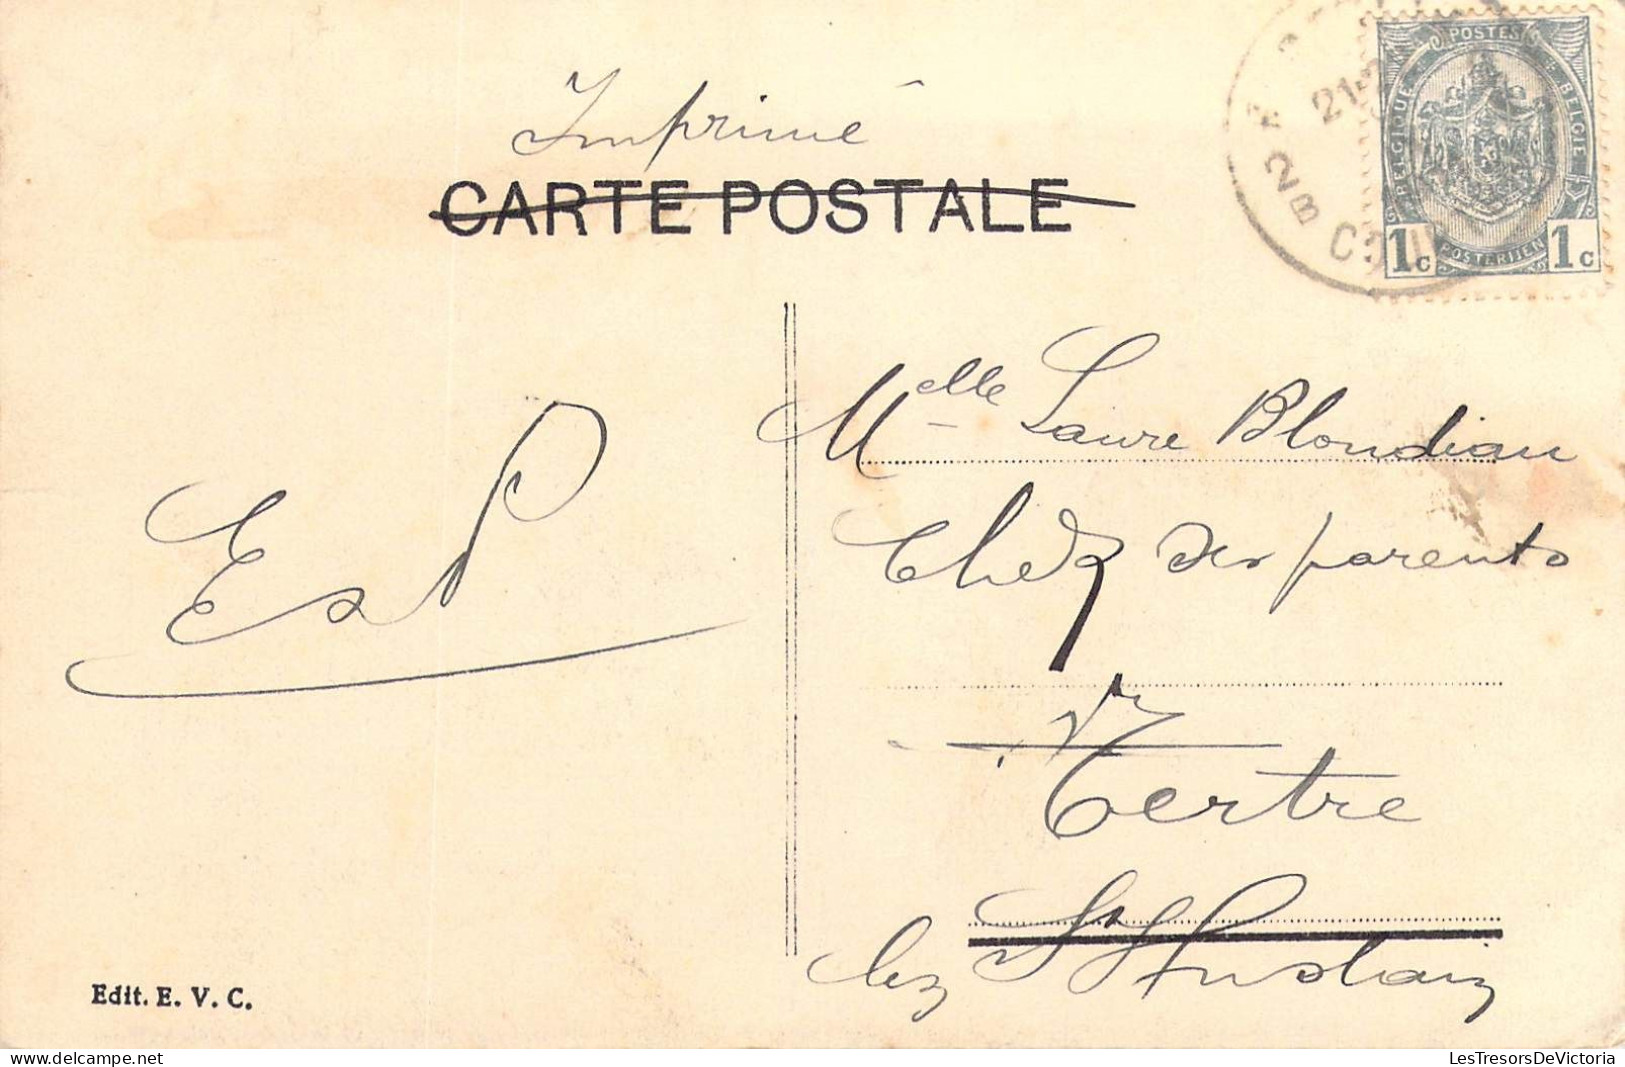 Imprimé
CARTE POSTALE
POSTES
BELGIQUE
BELGIE
POSTERIJEN
1c 1c
21
2B
Melle Laure Blondiau
Chez ses parents
Tertre
lez St Ghislain
Edit. E. V. C.
LesTresorsDeVictoria